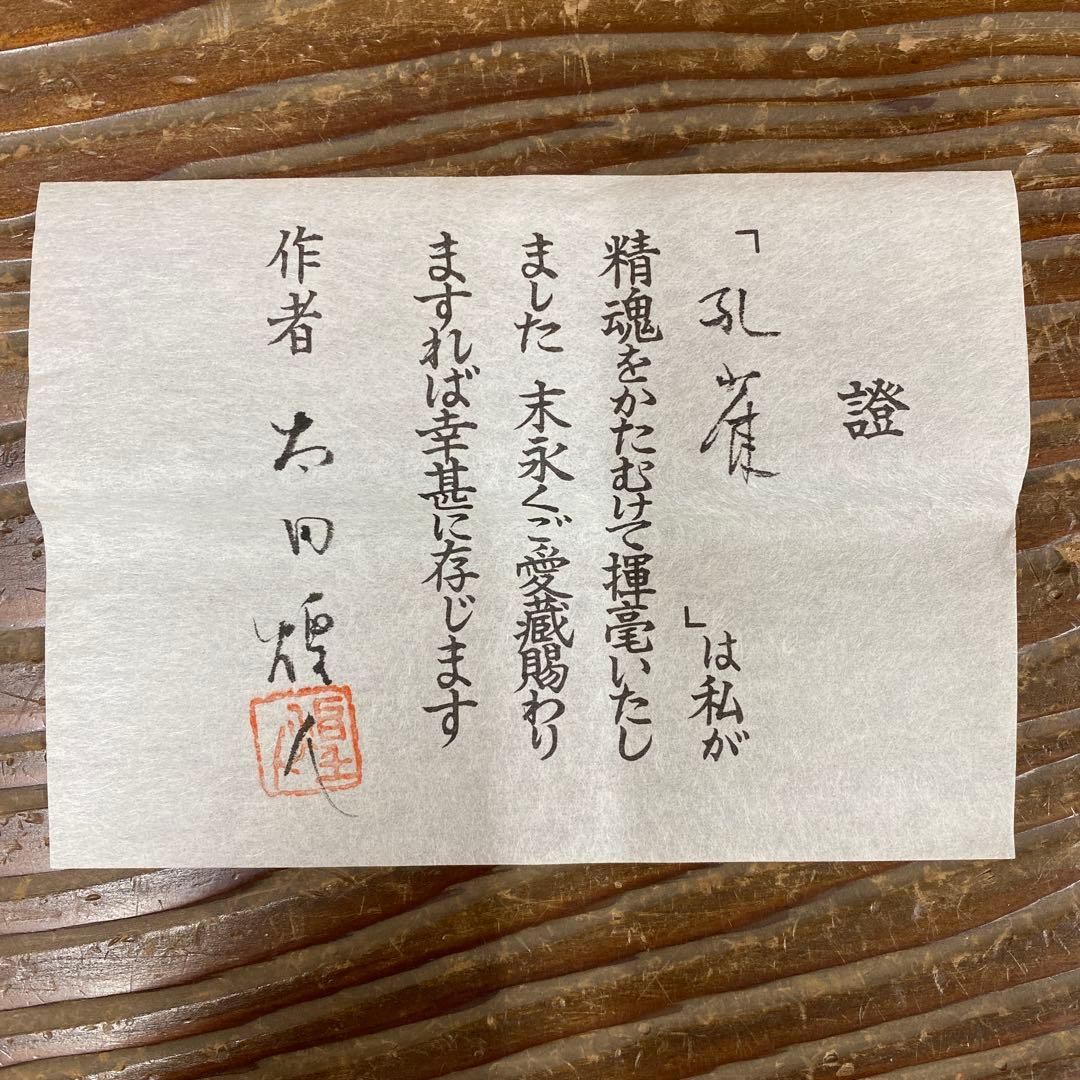 證
「孔雀」は私が
精魂をかたむけて揮毫いたし
ました 末永くご愛蔵賜わり
ますれば幸甚に存じます
作者 太田煌人